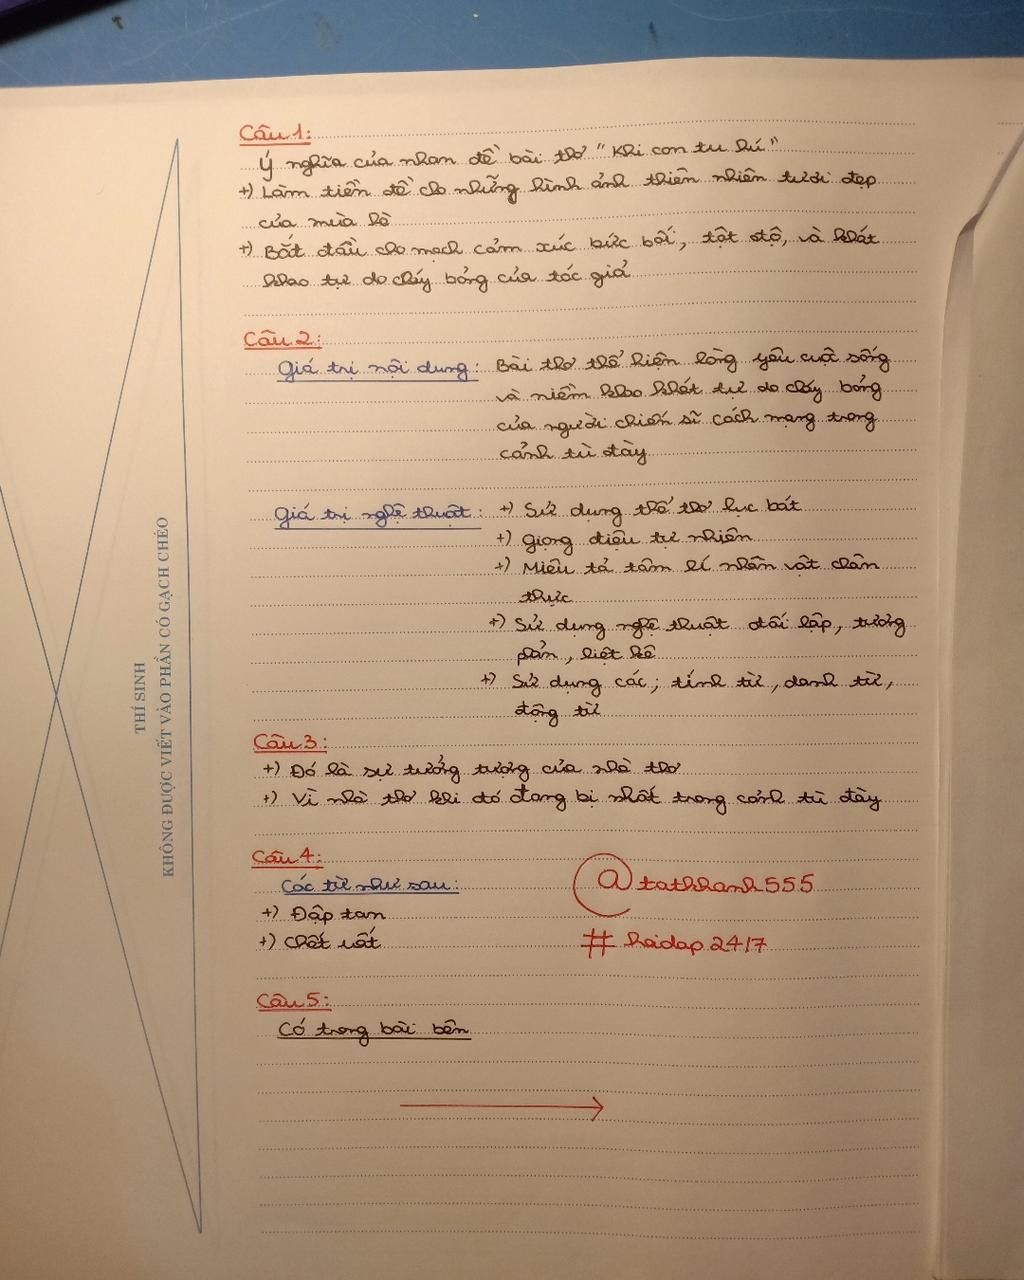 Câu 1:
Ý nghĩa của nhan đề bài thơ "Khi con tu hú"
+) Làm tiền đề cho những hình ảnh thiên nhiên tươi đẹp
của mùa hè
+) Bắt đầu cho mạch cảm xúc bức bối, tột độ, và khát
khao tự do cháy bỏng của tác giả
Câu 2:
Giá trị nội dung: Bài thơ thể hiện lòng yêu cuộc sống
và niềm khao khát tự do cháy bỏng
của người chiến sĩ cách mạng trong
cảnh tù đày
Giá trị nghệ thuật: +) Sử dụng thể thơ lục bát
+) Giọng điệu tự nhiên
+) Miêu tả tâm lí nhân vật chân
thực
+) Sử dụng nghệ thuật đối lập, tương
phản, liệt kê
+) Sử dụng các; tính từ, danh từ,
động từ
Câu 3:
+) Đó là sự tưởng tượng của nhà thơ
+) Vì nhà thơ khi đó đang bị nhất trong cảnh tù đày
Câu 4:
Các từ như sau:
@tathhanh555
+) Đập tan
+) Chết uất
#hoidap247
Câu 5:
Có trong bài bên
THÍ SINH
KHÔNG ĐƯỢC VIẾT VÀO PHẦN CÓ GẠCH CHÉO